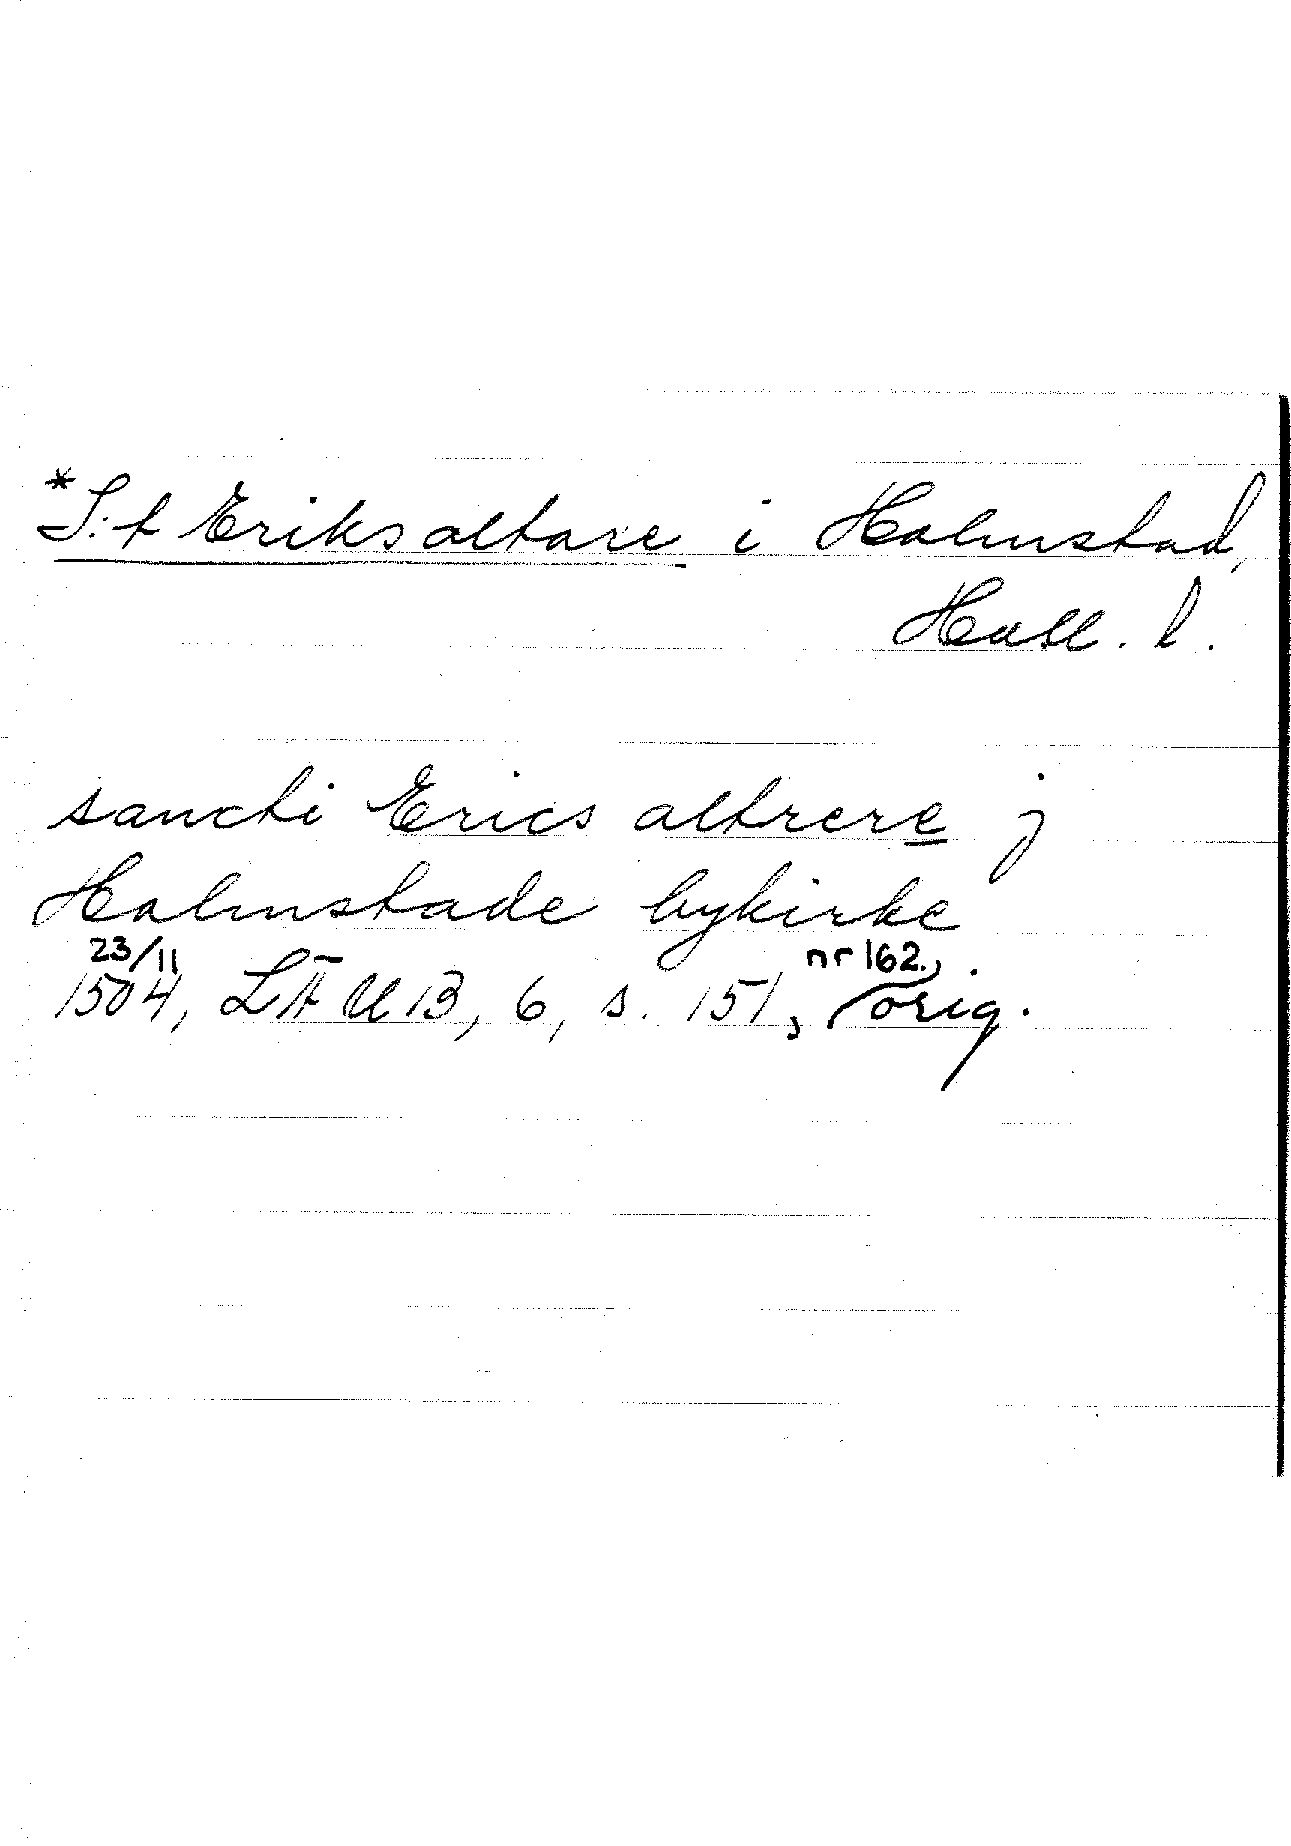 *S:t Eriksaltare i Halmstad,
Hall. l.
sancti Erics altrere j
Halmstade bykirke
23/11 nr 162.,
1504, LÄUB, 6, s. 151, orig.